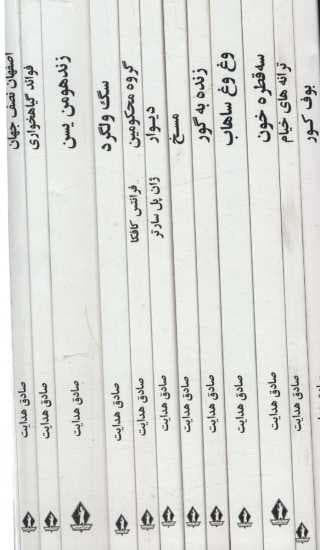 بوف کور
ترانه های خیام
صادق هدایت
سه قطره خون
صادق هدایت
وغ وغ ساهاب
صادق هدایت
زنده به گور
صادق هدایت
مسخ
صادق هدایت
دیوار
ژان پل سارتر
صادق هدایت
گروه محکومین
فرانتس کافکا
صادق هدایت
سگ ولگرد
صادق هدایت
زند هومن یسن
صادق هدایت
فوائد گیاهخواری
صادق هدایت
اصفهان نصف جهان
صادق هدایت